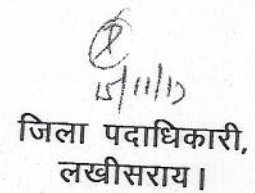 15/11/17
जिला पदाधिकारी,
लखीसराय।